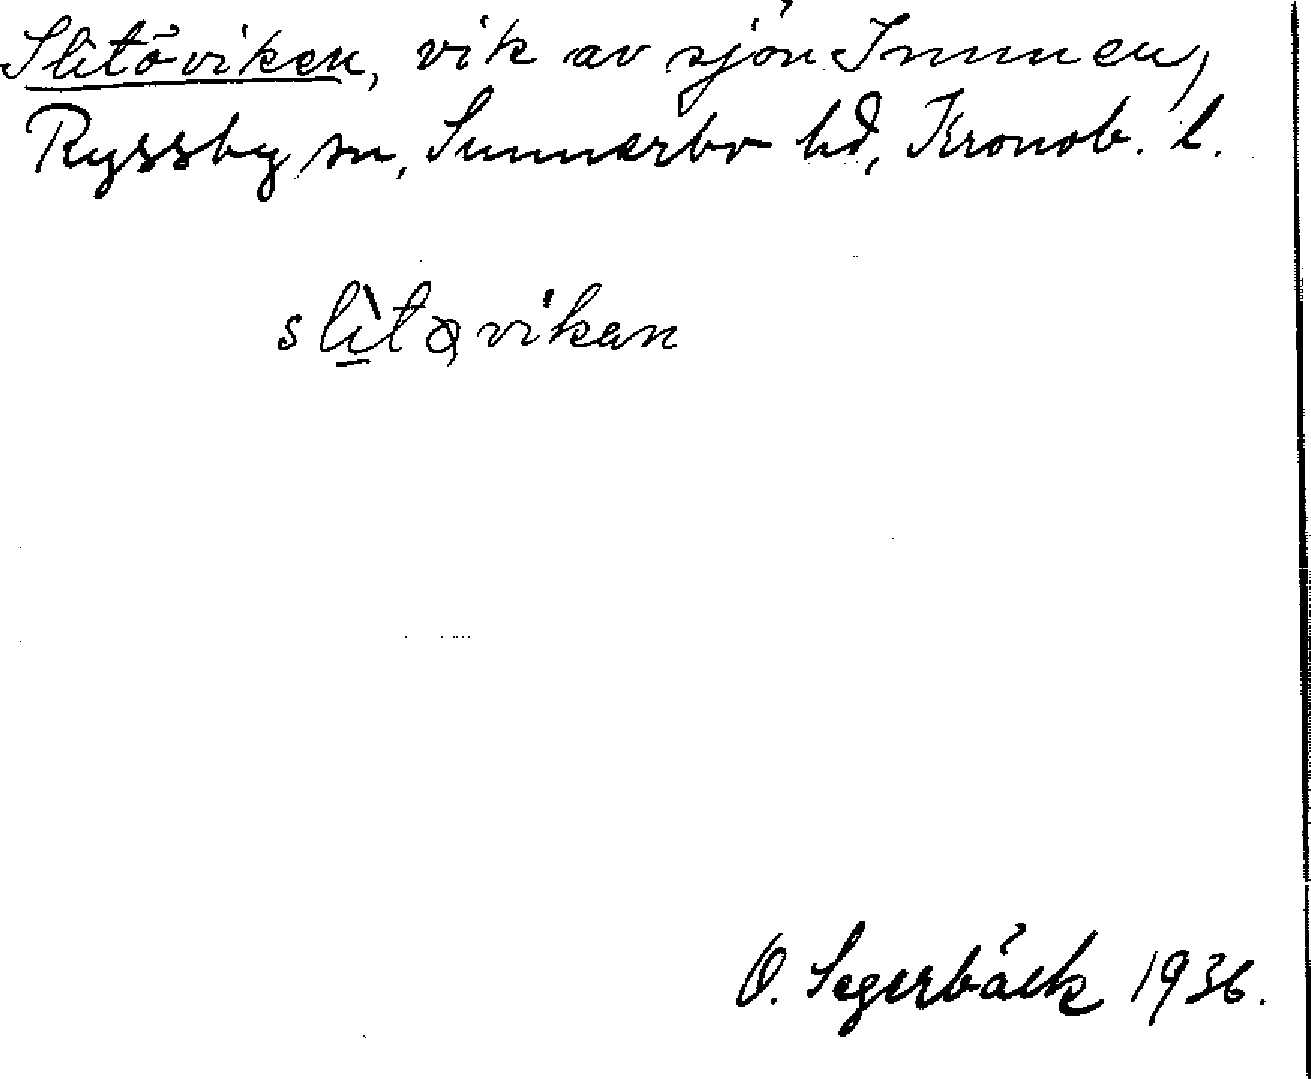 Slitöviken, vik av sjön Innen,
Ryssby sn, Sunnerbo hd, Kronob. l.
slìtøviken
O. Segerbäck 1936.